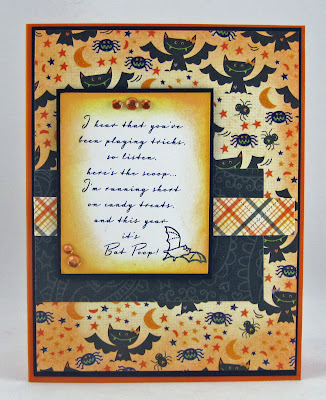 I hear that you've
been playing tricks,
so listen,
here's the scoop...
I'm running short
on candy treats,
and this year
it's
Bat Poop!